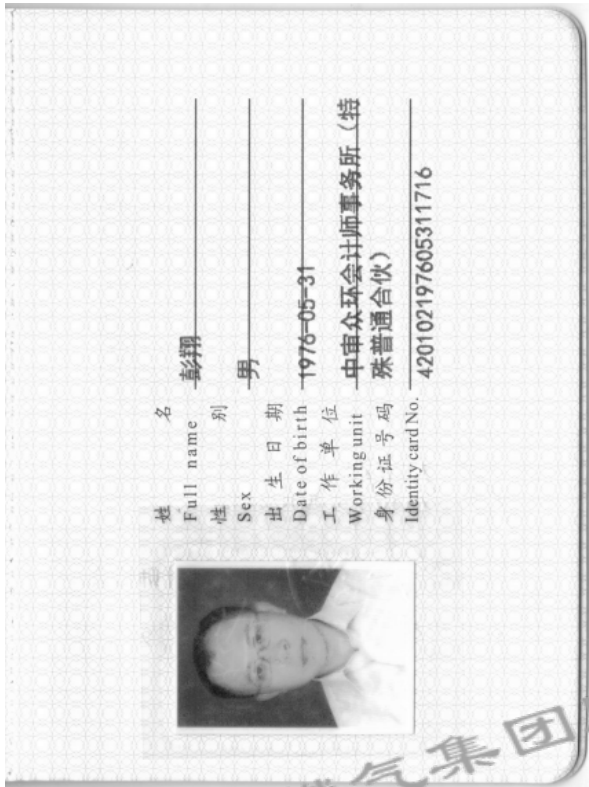 姓 名 彭翔
Full name
性 别 男
Sex
出 生 日 期 1976-05-31
Date of birth
工 作 单 位 中审众环会计师事务所（特
Working unit 殊普通合伙）
身 份 证 号 码 420102197605311716
Identity card No.
气集团